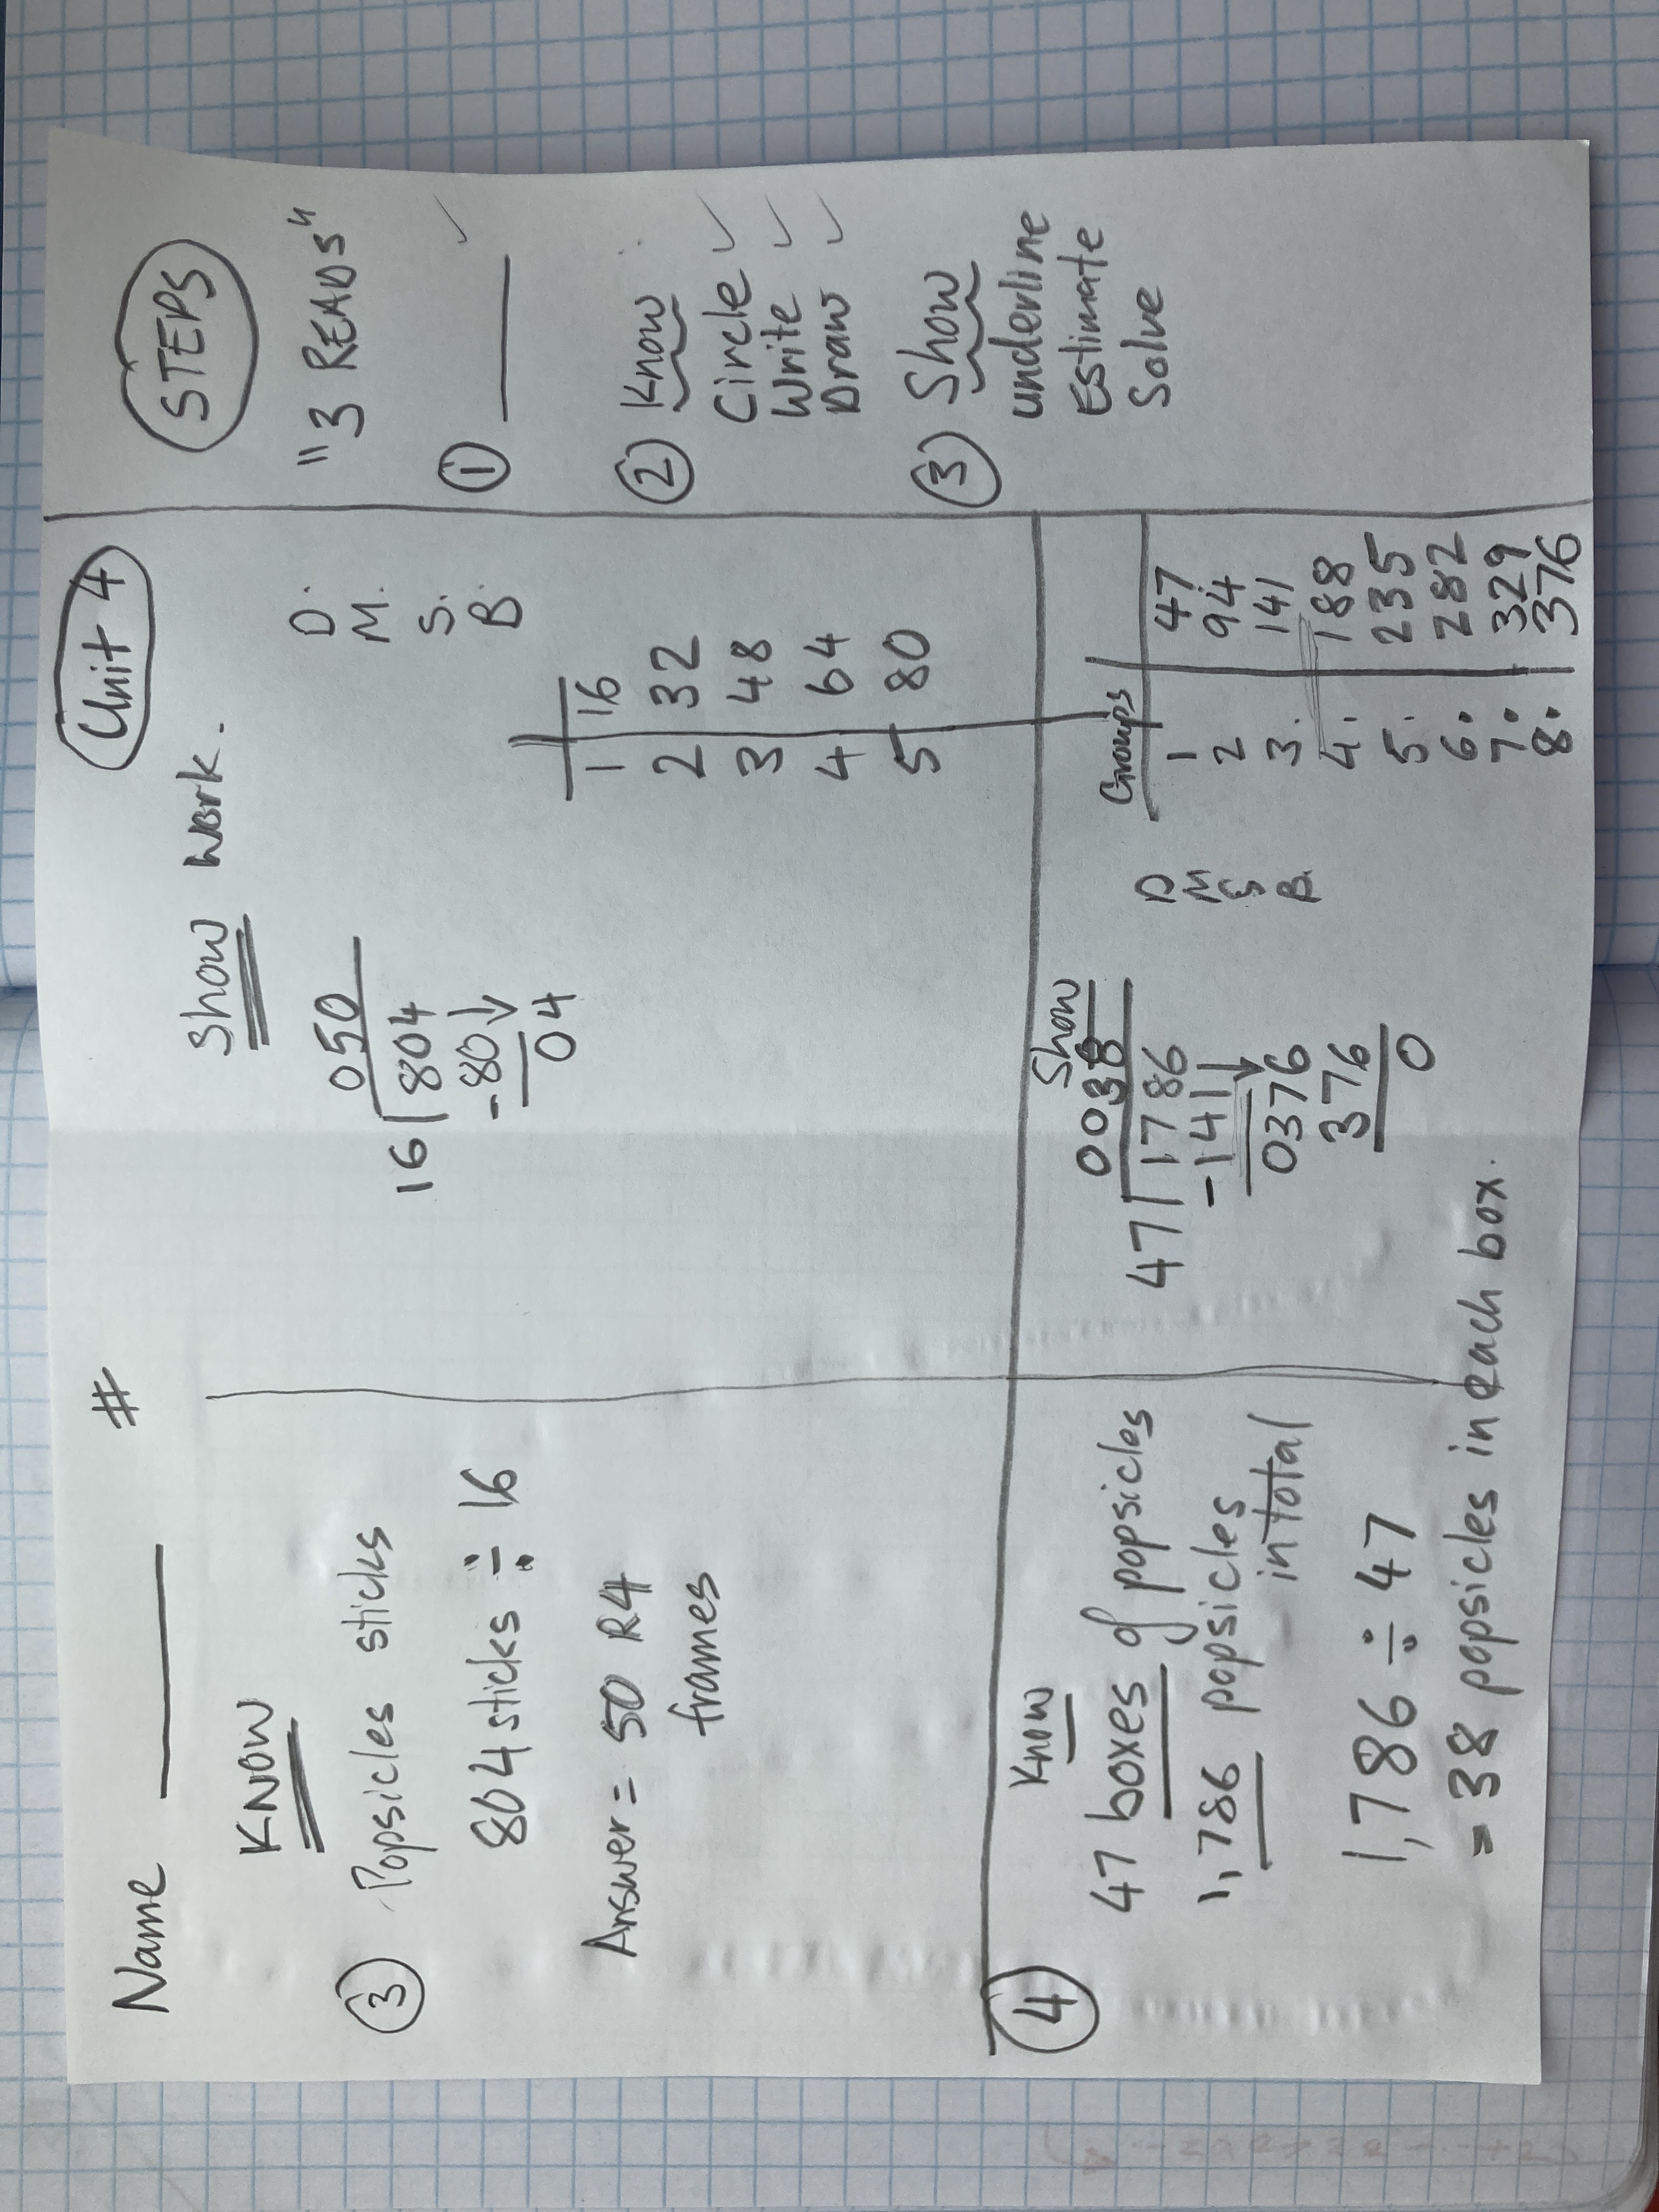 Name ______ #
Unit 4
KNOW
③ Popsicles sticks
804 sticks ÷ 16
Answer = 50 R4
frames
Show Work.
050
16 804
-80↓
04
D.
M.
S.
B.
1 16
2 32
3 48
4 64
5 80
④
Know
47 boxes of popsicles
1,786 popsicles
in total
1,786 ÷ 47
= 38 popsicles in each box.
Show
0038
47 1786
-141↓
0376
376
0
D
M
S
B.
Groups
1 47
2 94
3. 141
4. 188
5. 235
6. 282
7. 329
8. 376
STEPS
"3 READS"
① ______ ✓
② Know
Circle ✓
Write ✓
Draw ✓
③ Show
underline
Estimate
Solve